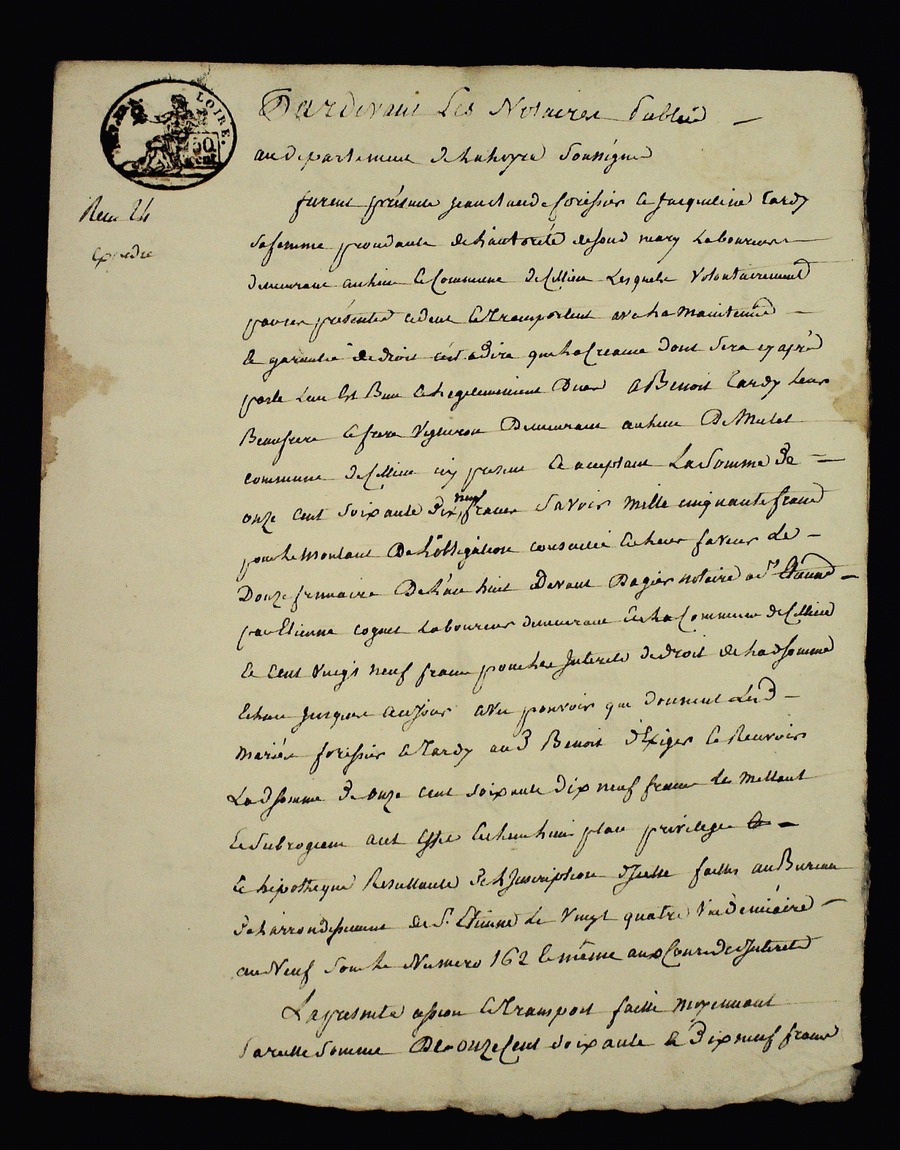 LOIRE.
50
Pardevant Les Notaires Publics
au departement de la Loire Soussignés
furent présents jean claude forissier et jacqueline tardy
sa femme procédante de l'autorité de son d mary Laboureurs
demeurant au lieu et Commune de Cellieu Lesquels Volontairement
par ces présentes cedent et transportent avec la maintenue
et garantie de droit c'est a dire que la Creance dont sera cy après
parlé leur est Bien et legitimement Due a Benoit tardy leur
Beaufrere et frere Vigneron Demeurant au lieu De Mulet
commune de Cellieu icy présent et acceptant La Somme de
onze cent soixante dix neuf francs Savoir mille cinquante francs
pour le montant De l'obligation consentie en leur faveur le
Douze frimaire De l'an huit Devant Dagier notaire a St Chamond
par Etienne cognet Laboureur demeurant en la Commune de Cellieu
et cent vingt neuf francs pour les Interets de droit de lad somme
Echus jusques a ce jour avec pouvoir que donnent Lesd
mariés forissier et tardy aud Benoit d'Exiger et Recevoir
Lad somme de onze cent soixante dix neuf francs le mettant
et subrogeant a cet effet en leur lieu place privilege
et hipotheque Resultante de l'Inscription d'Icelle faitte au Bureau
de l'arrondissement de St Etienne Le Vingt quatre Vendemiaire
an Neuf Sous le Numero 162 et même aux Cours des Interets
La presente cession et transport faitte moyennant
Pareille Somme De onze Cent soixante et Dix neuf francs